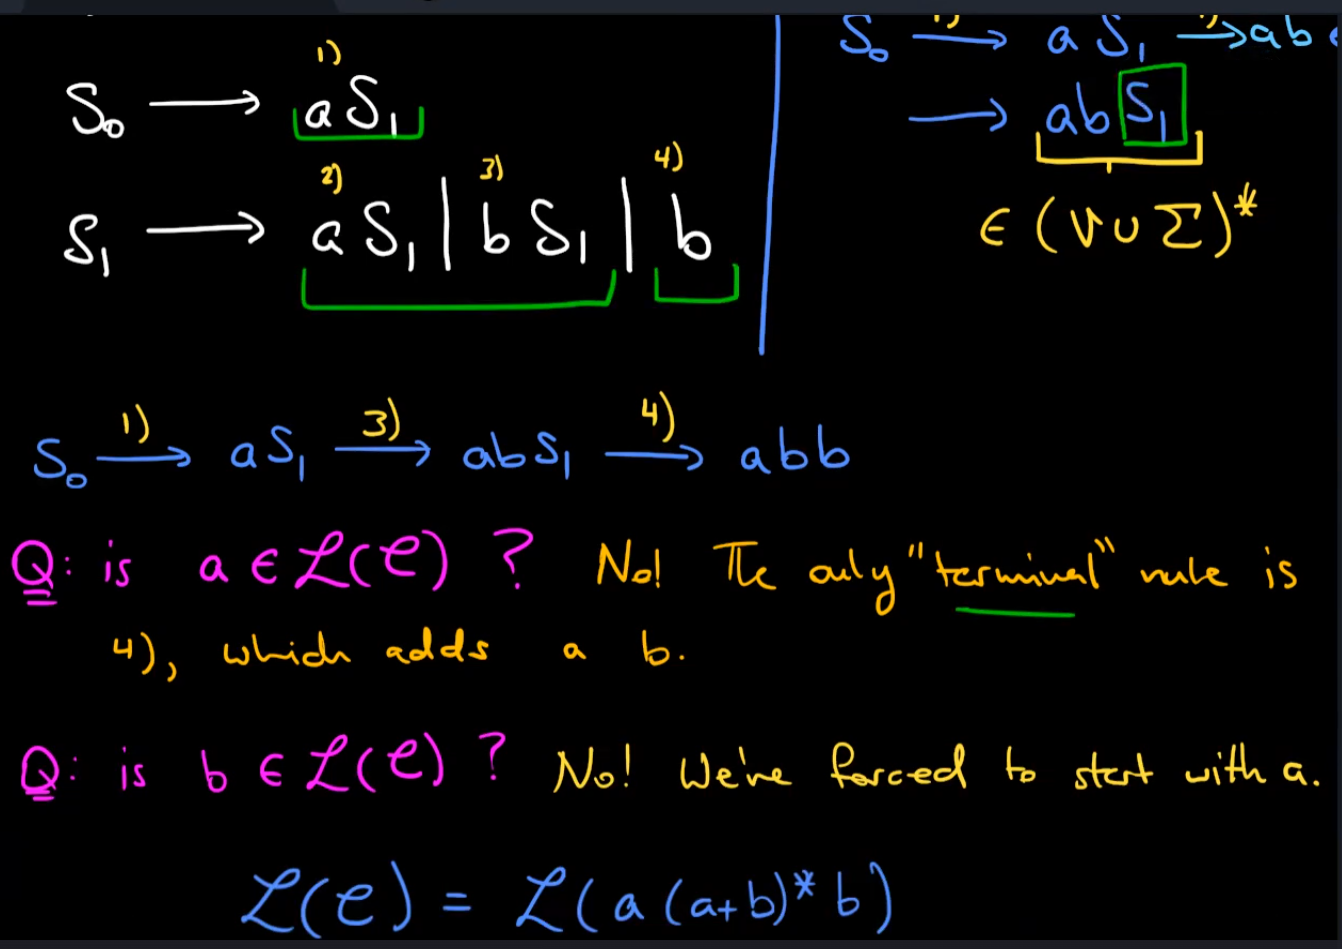 S₀ ⟶ aS₁ ⟶ ab
1)
S₀ ⟶ aS₁
⟶ abS₁
2) 3) 4)
S₁ ⟶ aS₁ | bS₁ | b
∈ (V ∪ Σ)*
S₀ ⟶ 1) aS₁ ⟶ 3) abS₁ ⟶ 4) abb
Q: is a ∈ L(C) ? No! The only "terminal" rule is
4), which adds a b.
Q: is b ∈ L(C) ? No! We're forced to start with a.
L(C) = L(a(a+b)*b)